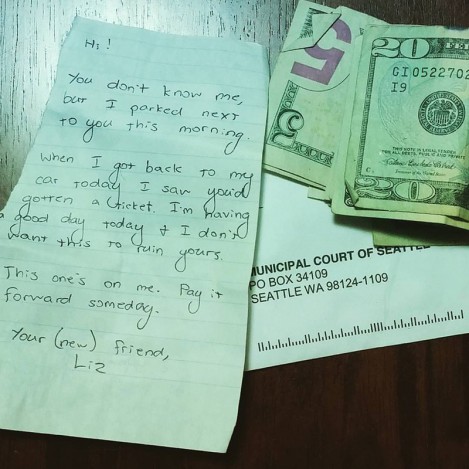 Hi!
You don't know me,
but I parked next
to you this morning.
When I got back to my
car today I saw you'd
gotten a ticket. I'm having
a good day today & I don't
want this to ruin yours.
This one's on me. Pay it
forward someday.
Your (new) friend,
Liz
5
5
20
GI0522702
I9
THIS NOTE IS LEGAL TENDER
FOR ALL DEBTS, PUBLIC AND PRIVATE
20
MUNICIPAL COURT OF SEATTLE
PO BOX 34109
SEATTLE WA 98124-1109